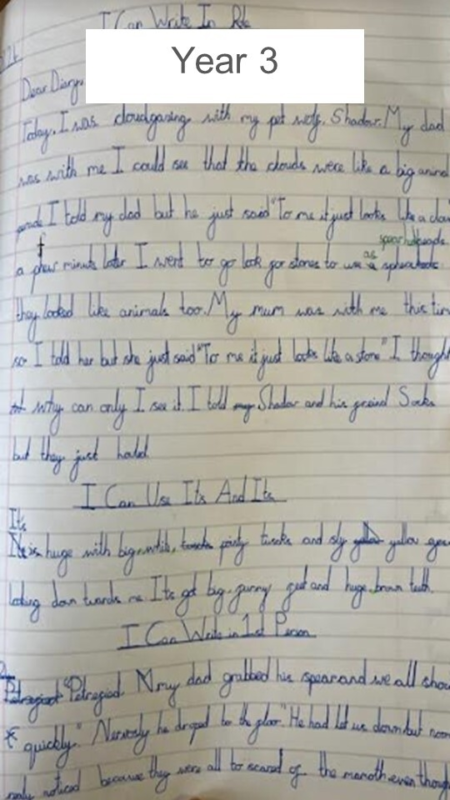 I Can Write In Role
Year 3
Dear Diary,
Today, I was cloudgazing with my pet wolf, Shadow. My dad
was with me I could see that the clouds were like a big
and I told my dad but he just said "To me it just looks like a
spearheads
a few minute later I went to go look for stones to use as
they looked like animals too. My mum was with me this
so I told her but she just said "To me it just looks like a stone" I thought
why can only I see it. I told Shadow and his freind Socks
but they just howled
I Can Use Its And It's
It's
huge with big pointy tusks and yellow
looking down towards me. Its got big, furry feet and huge brown teeth.
I Can Write in 1st Person
Petrayied "Petrayied N my dad grabbed his spear and we all
quickly." Nervesly he droped to the floor." He had let us down but
noticed because they were all to scared of the